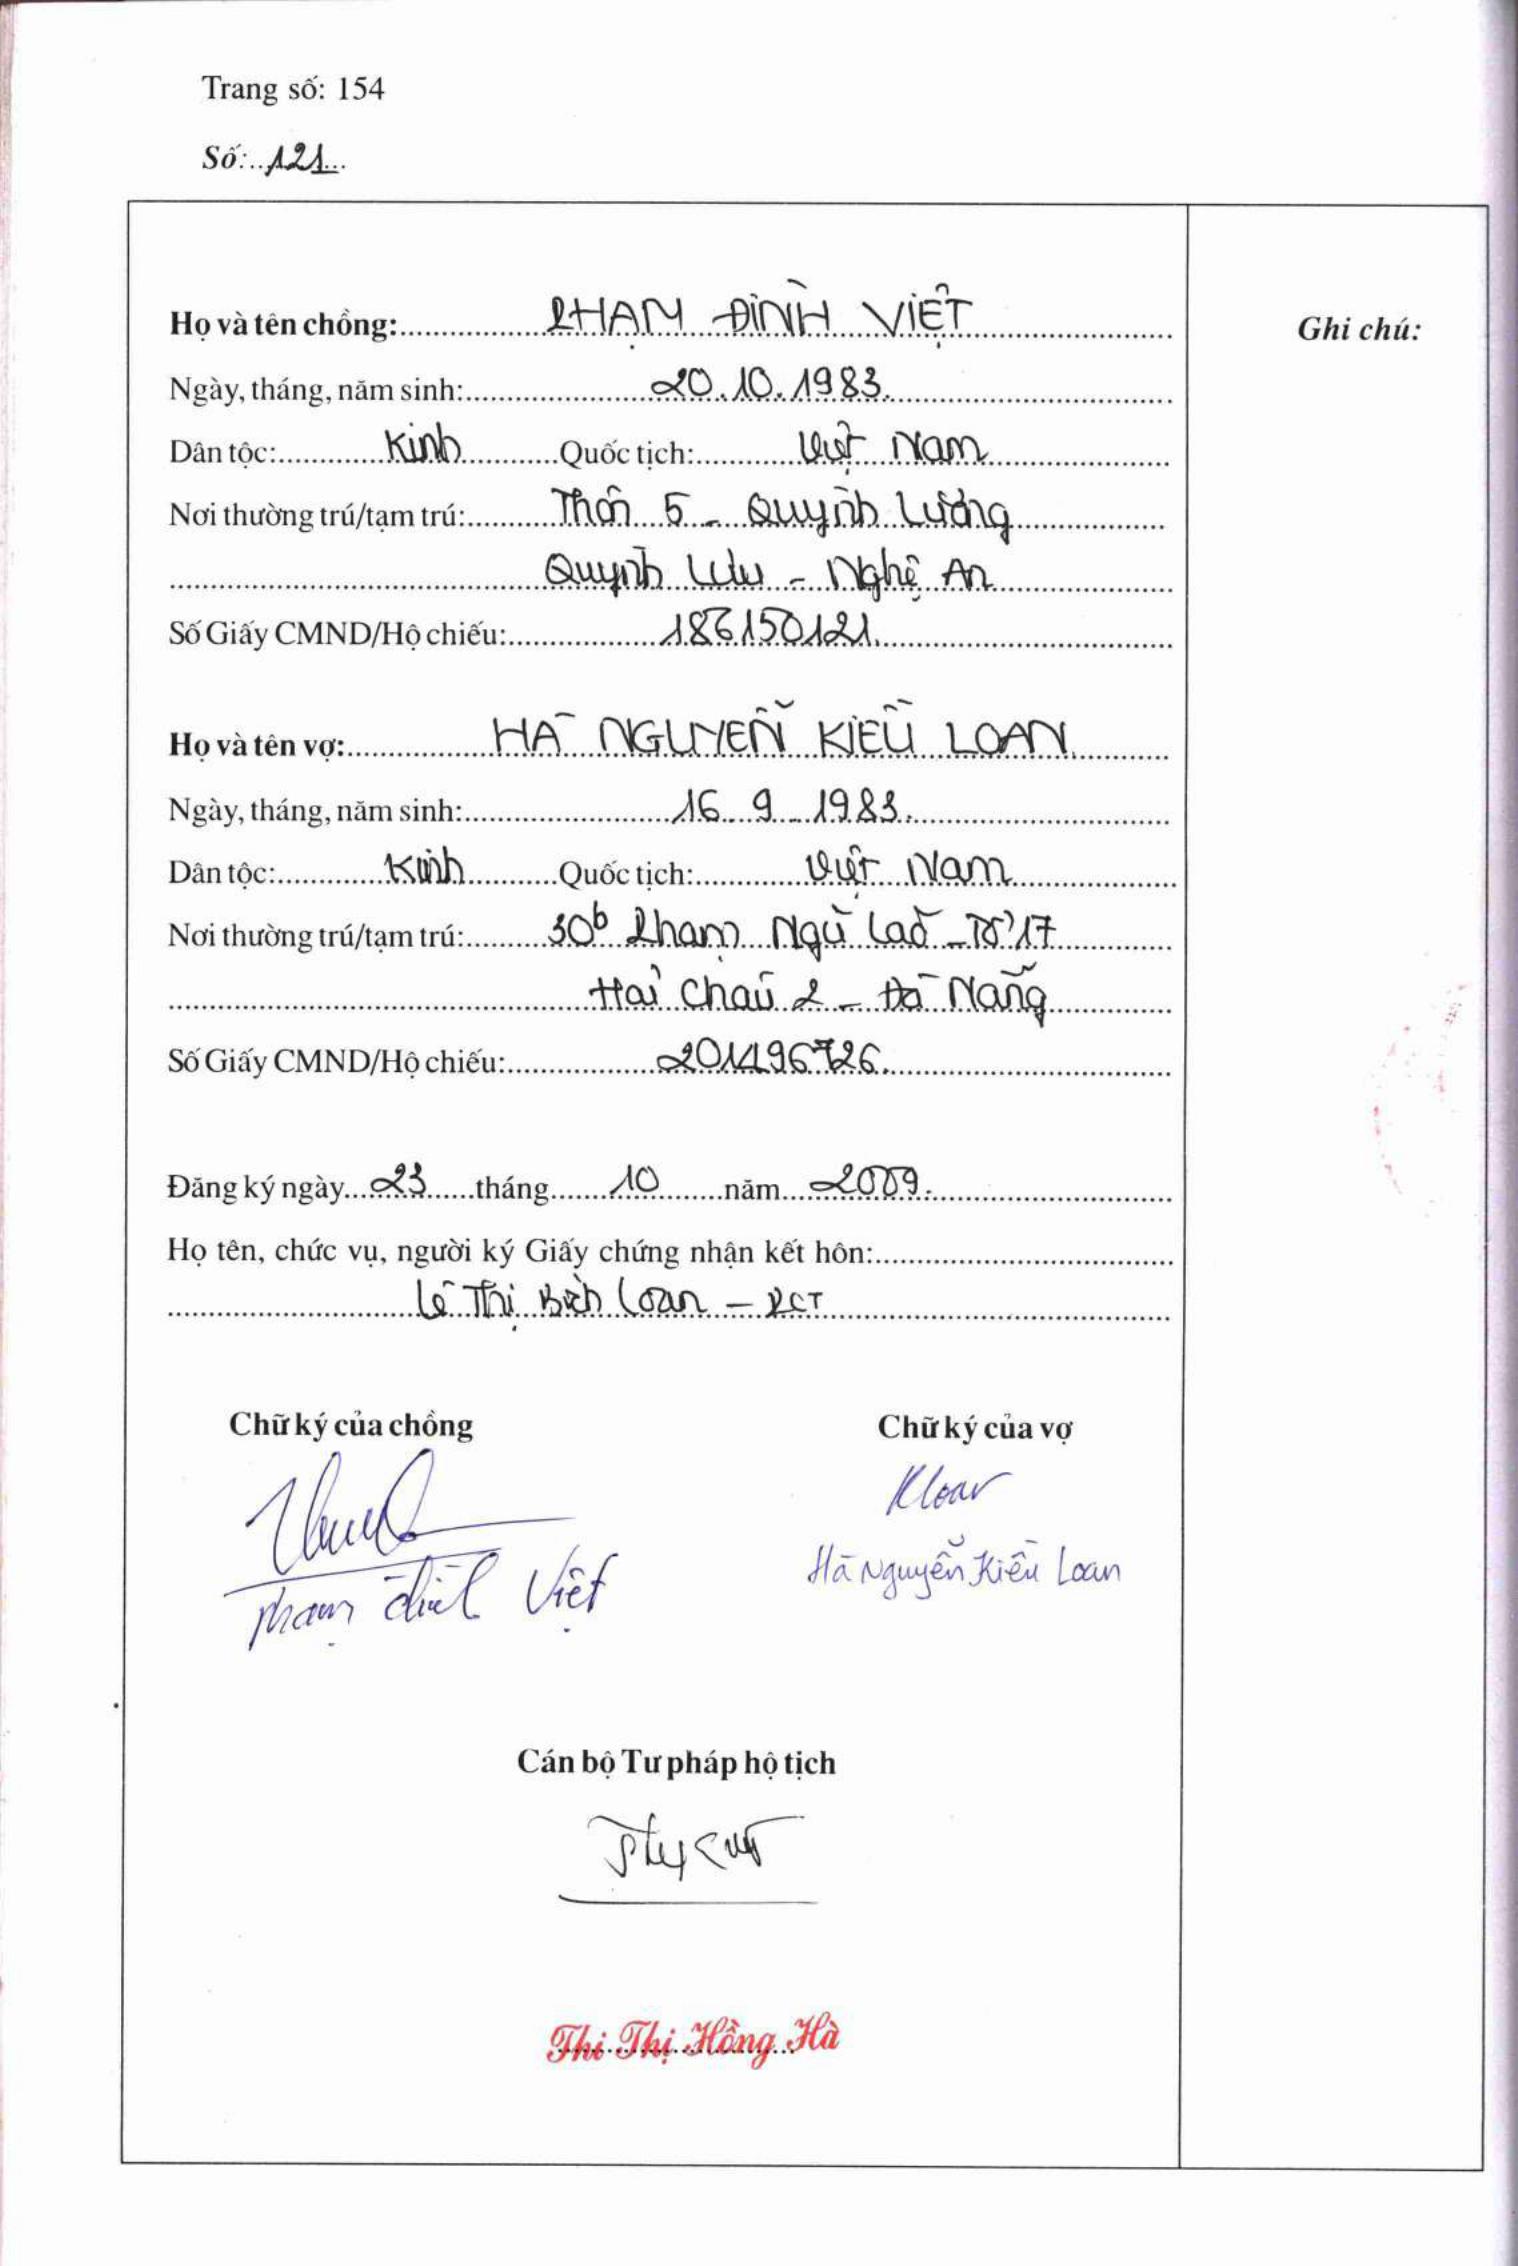 Trang số: 154
Số: 121
Họ và tên chồng: PHẠM ĐÌNH VIỆT
Ghi chú:
Ngày, tháng, năm sinh: 20.10.1983.
Dân tộc: Kinh Quốc tịch: Việt Nam
Nơi thường trú/tạm trú: Thôn 5 - Quỳnh Lương
Quỳnh Lưu - Nghệ An
Số Giấy CMND/Hộ chiếu: 186150121.
Họ và tên vợ: HÀ NGUYỄN KIỀU LOAN
Ngày, tháng, năm sinh: 16.9.1983.
Dân tộc: Kinh Quốc tịch: Việt Nam
Nơi thường trú/tạm trú: 30b Phạm Ngũ Lão - Tổ 17
Hải Châu 2 - Đà Nẵng
Số Giấy CMND/Hộ chiếu: 201496726.
Đăng ký ngày 23 tháng 10 năm 2009.
Họ tên, chức vụ, người ký Giấy chứng nhận kết hôn:
Lê Thị Bích Loan - PCT
Chữ ký của chồng Chữ ký của vợ
KLoan
Phạm Đình Việt Hà Nguyễn Kiều Loan
Cán bộ Tư pháp hộ tịch
Thi Thị Hồng Hà